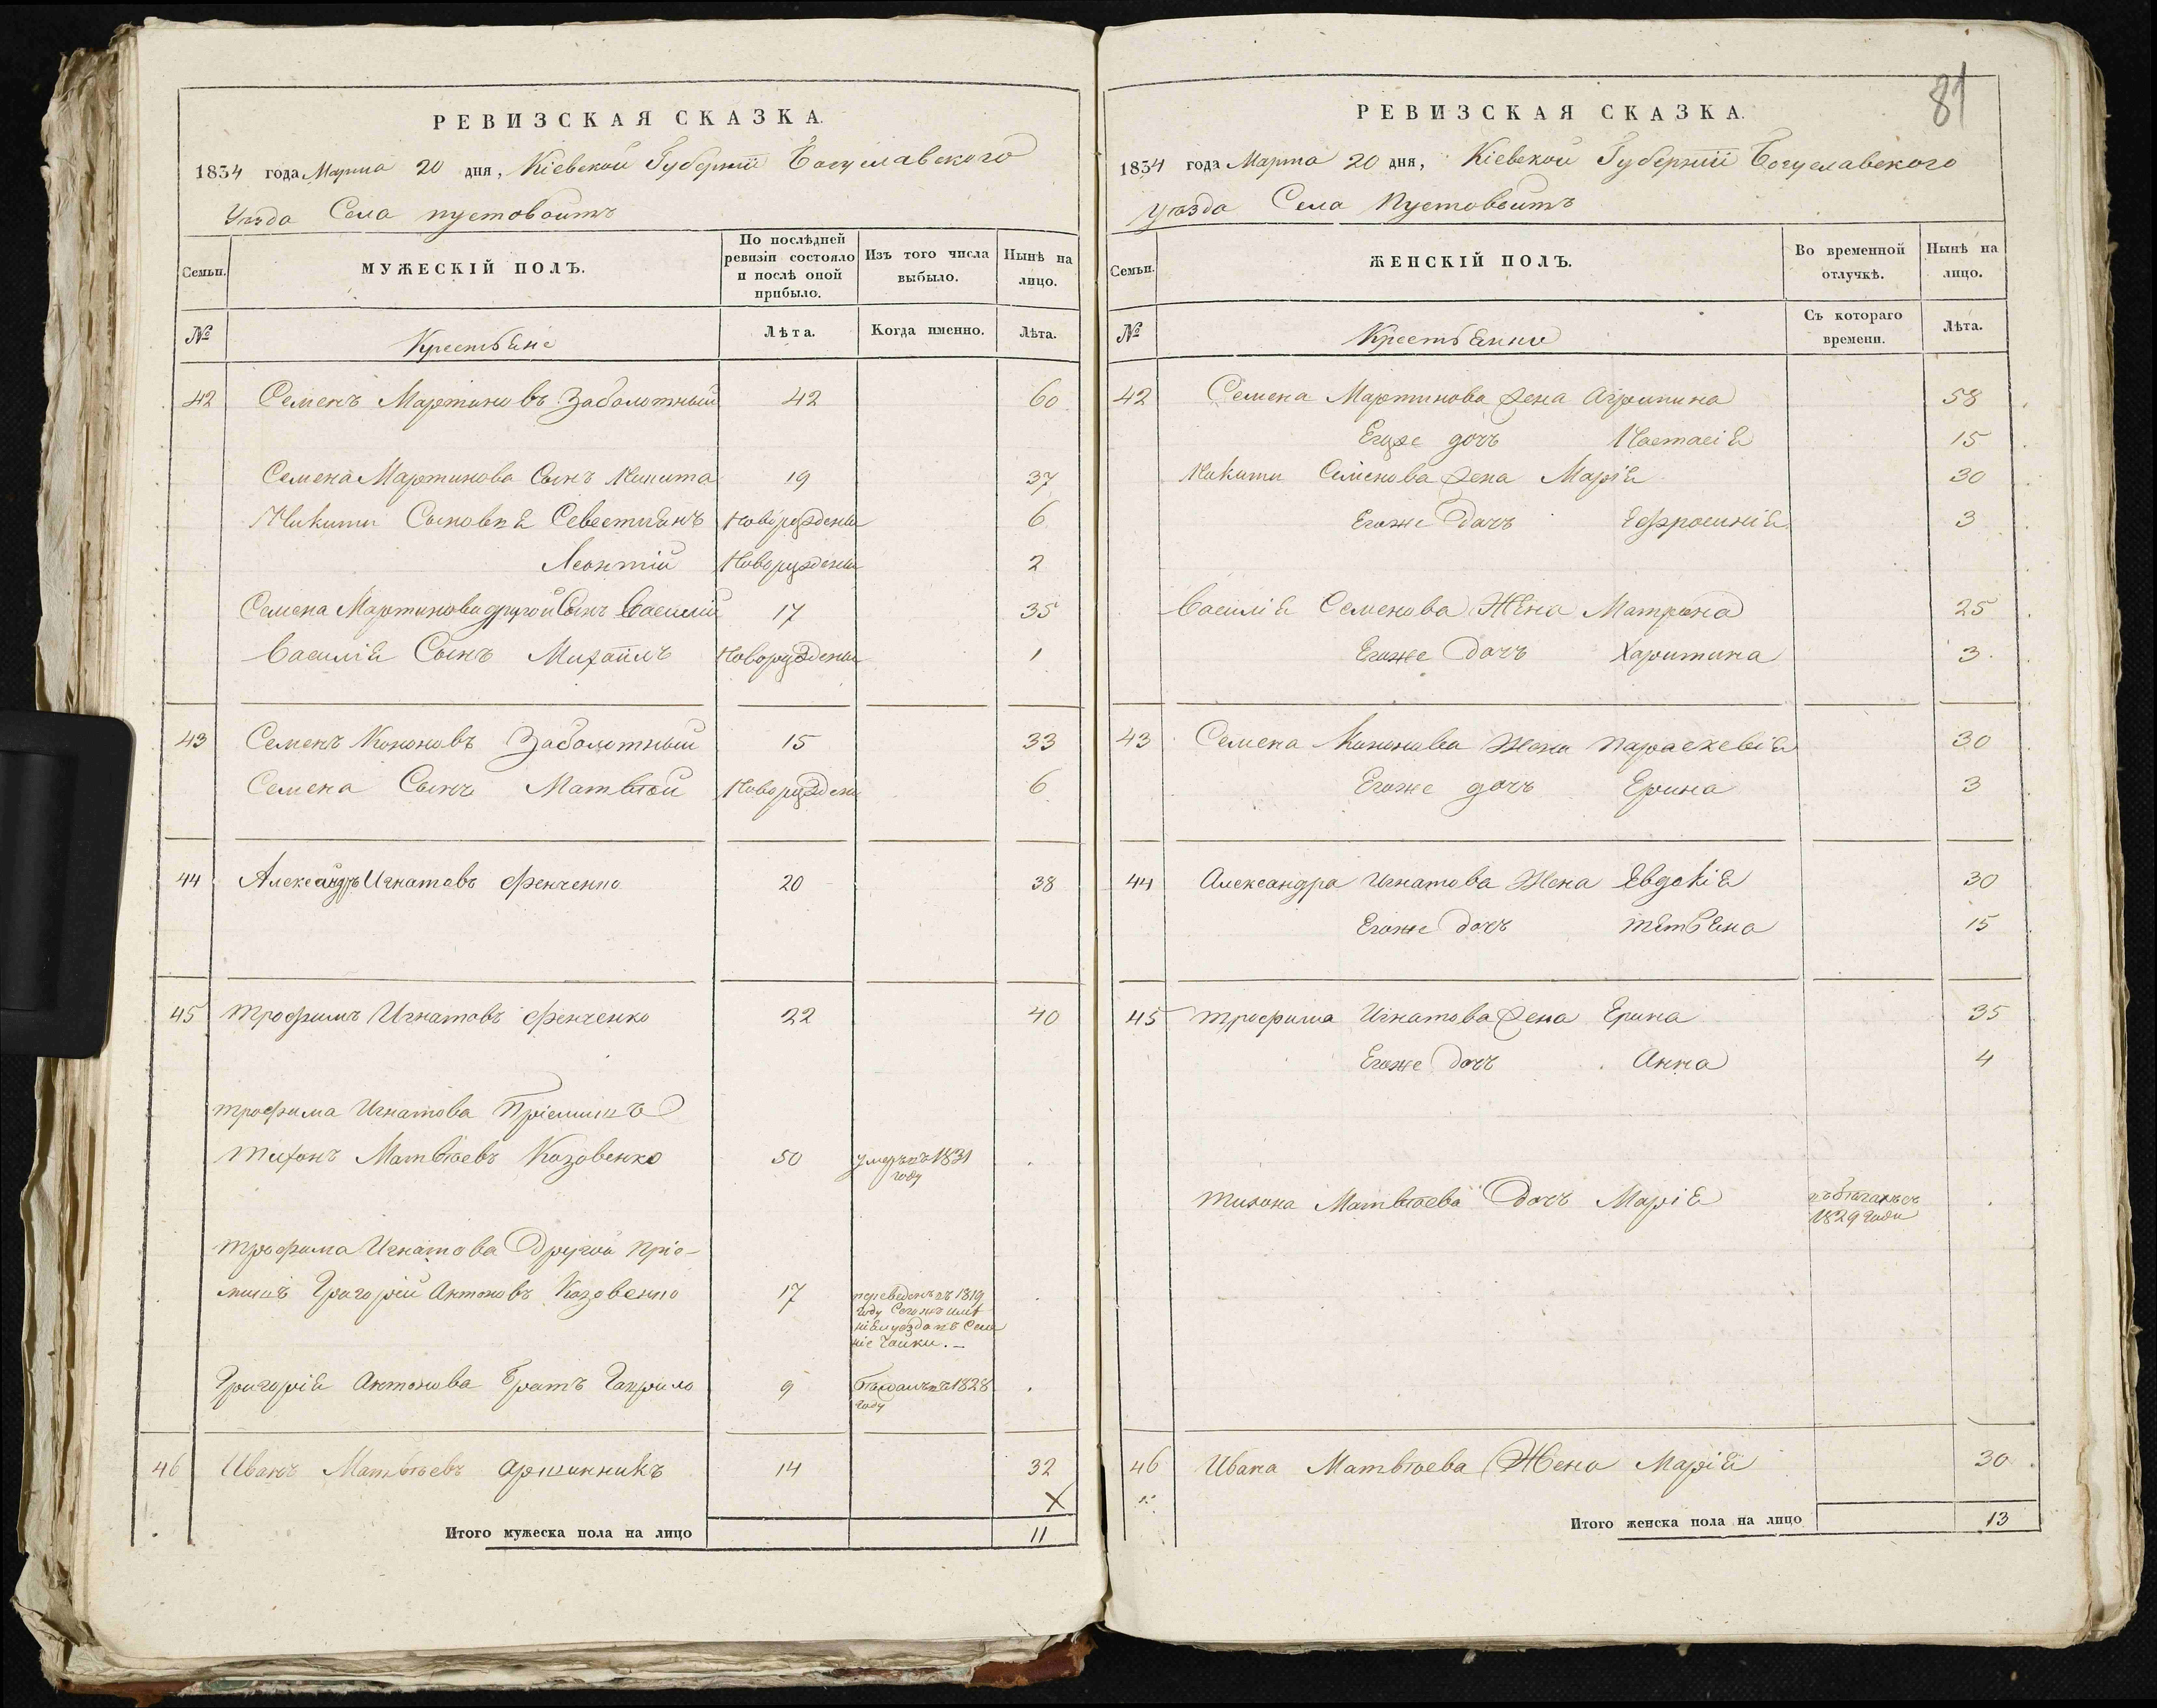 РЕВИЗСКАЯ СКАЗКА.
1834 года Марта 20 дня, Кіевской Губерніи Богуславского
Уѣзда Села Пустовоитъ
Семьи.
МУЖЕСКІЙ ПОЛЪ.
По послѣдней ревизіи состояло и послѣ оной прибыло.
Изъ того числа выбыло.
Нынѣ на лицо.
№
Крестьяне
Лѣта.
Когда именно.
Лѣта.
42 Семенъ Мартиновъ Заболотный 42 60
Семена Мартинова Сынъ Микита 19 37
Микити Сыновья Севестиянъ Новорожденъ 6
Леонтій Новорожденъ 2
Семена Мартинова другой Сынъ Василій 17 35
Василія Сынъ Михаилъ Новорожденъ 1
43 Семенъ Кононовъ Заболотный 15 33
Семена Сынъ Матвѣй Новорожденъ 6
44 Александръ Игнатовъ Фенченко 20 38
45 Трофимъ Игнатовъ Фенченко 22 40
Трофима Игнатова Пріемишъ
Тихонъ Матвѣевъ Козовенко 50 умеръ въ 1831
году
Трофима Игнатова Другой Пріе-
мишъ Григорій Антоновъ Козовенко 17 переведенъ въ 1819
году
Чайки.
Григорія Антонова Братъ Гаврило 9 Бѣжалъ въ 1828
году
46 Иванъ Матвѣевъ Аршинникъ 14 32
X
Итого мужеска пола на лицо 11
81
РЕВИЗСКАЯ СКАЗКА.
1834 года Марта 20 дня, Кіевской Губерніи Богуславского
Уѣзда Села Пустовоитъ
Семьи.
ЖЕНСКІЙ ПОЛЪ.
Во временной отлучкѣ.
Нынѣ на лицо.
№
Крестьянки
Съ котораго времени.
Лѣта.
42 Семена Мартинова жена Агрипина 58
Егоже дочь Настасія 15
Микити Семенова жена Марія 30
Егоже Дочъ Ефросинія 3
Василія Семенова Жена Матрона 25
Егоже Дочъ Харитина 3
43 Семена Кононова Жена Параскевія 30
Егоже дочъ Ерина 3
44 Александра Игнатова Жена Евдокія 30
Егоже Дочъ Тетьяна 15
45 Трофима Игнатова жена Ерина 35
Егоже Дочъ Анна 4
Тихона Матвѣева Дочъ Марія въ бѣгахъ съ
1829 года
46 Ивана Матвѣева Жена Марія 30
Итого женска пола на лицо 13